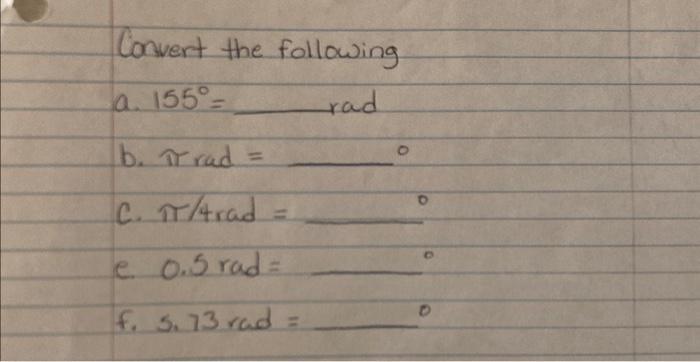 Convert the following
a. 155° = ______ rad
b. π rad = ______ °
c. π/4 rad = ______ °
e. 0.5 rad = ______ °
f. 5.73 rad = ______ °